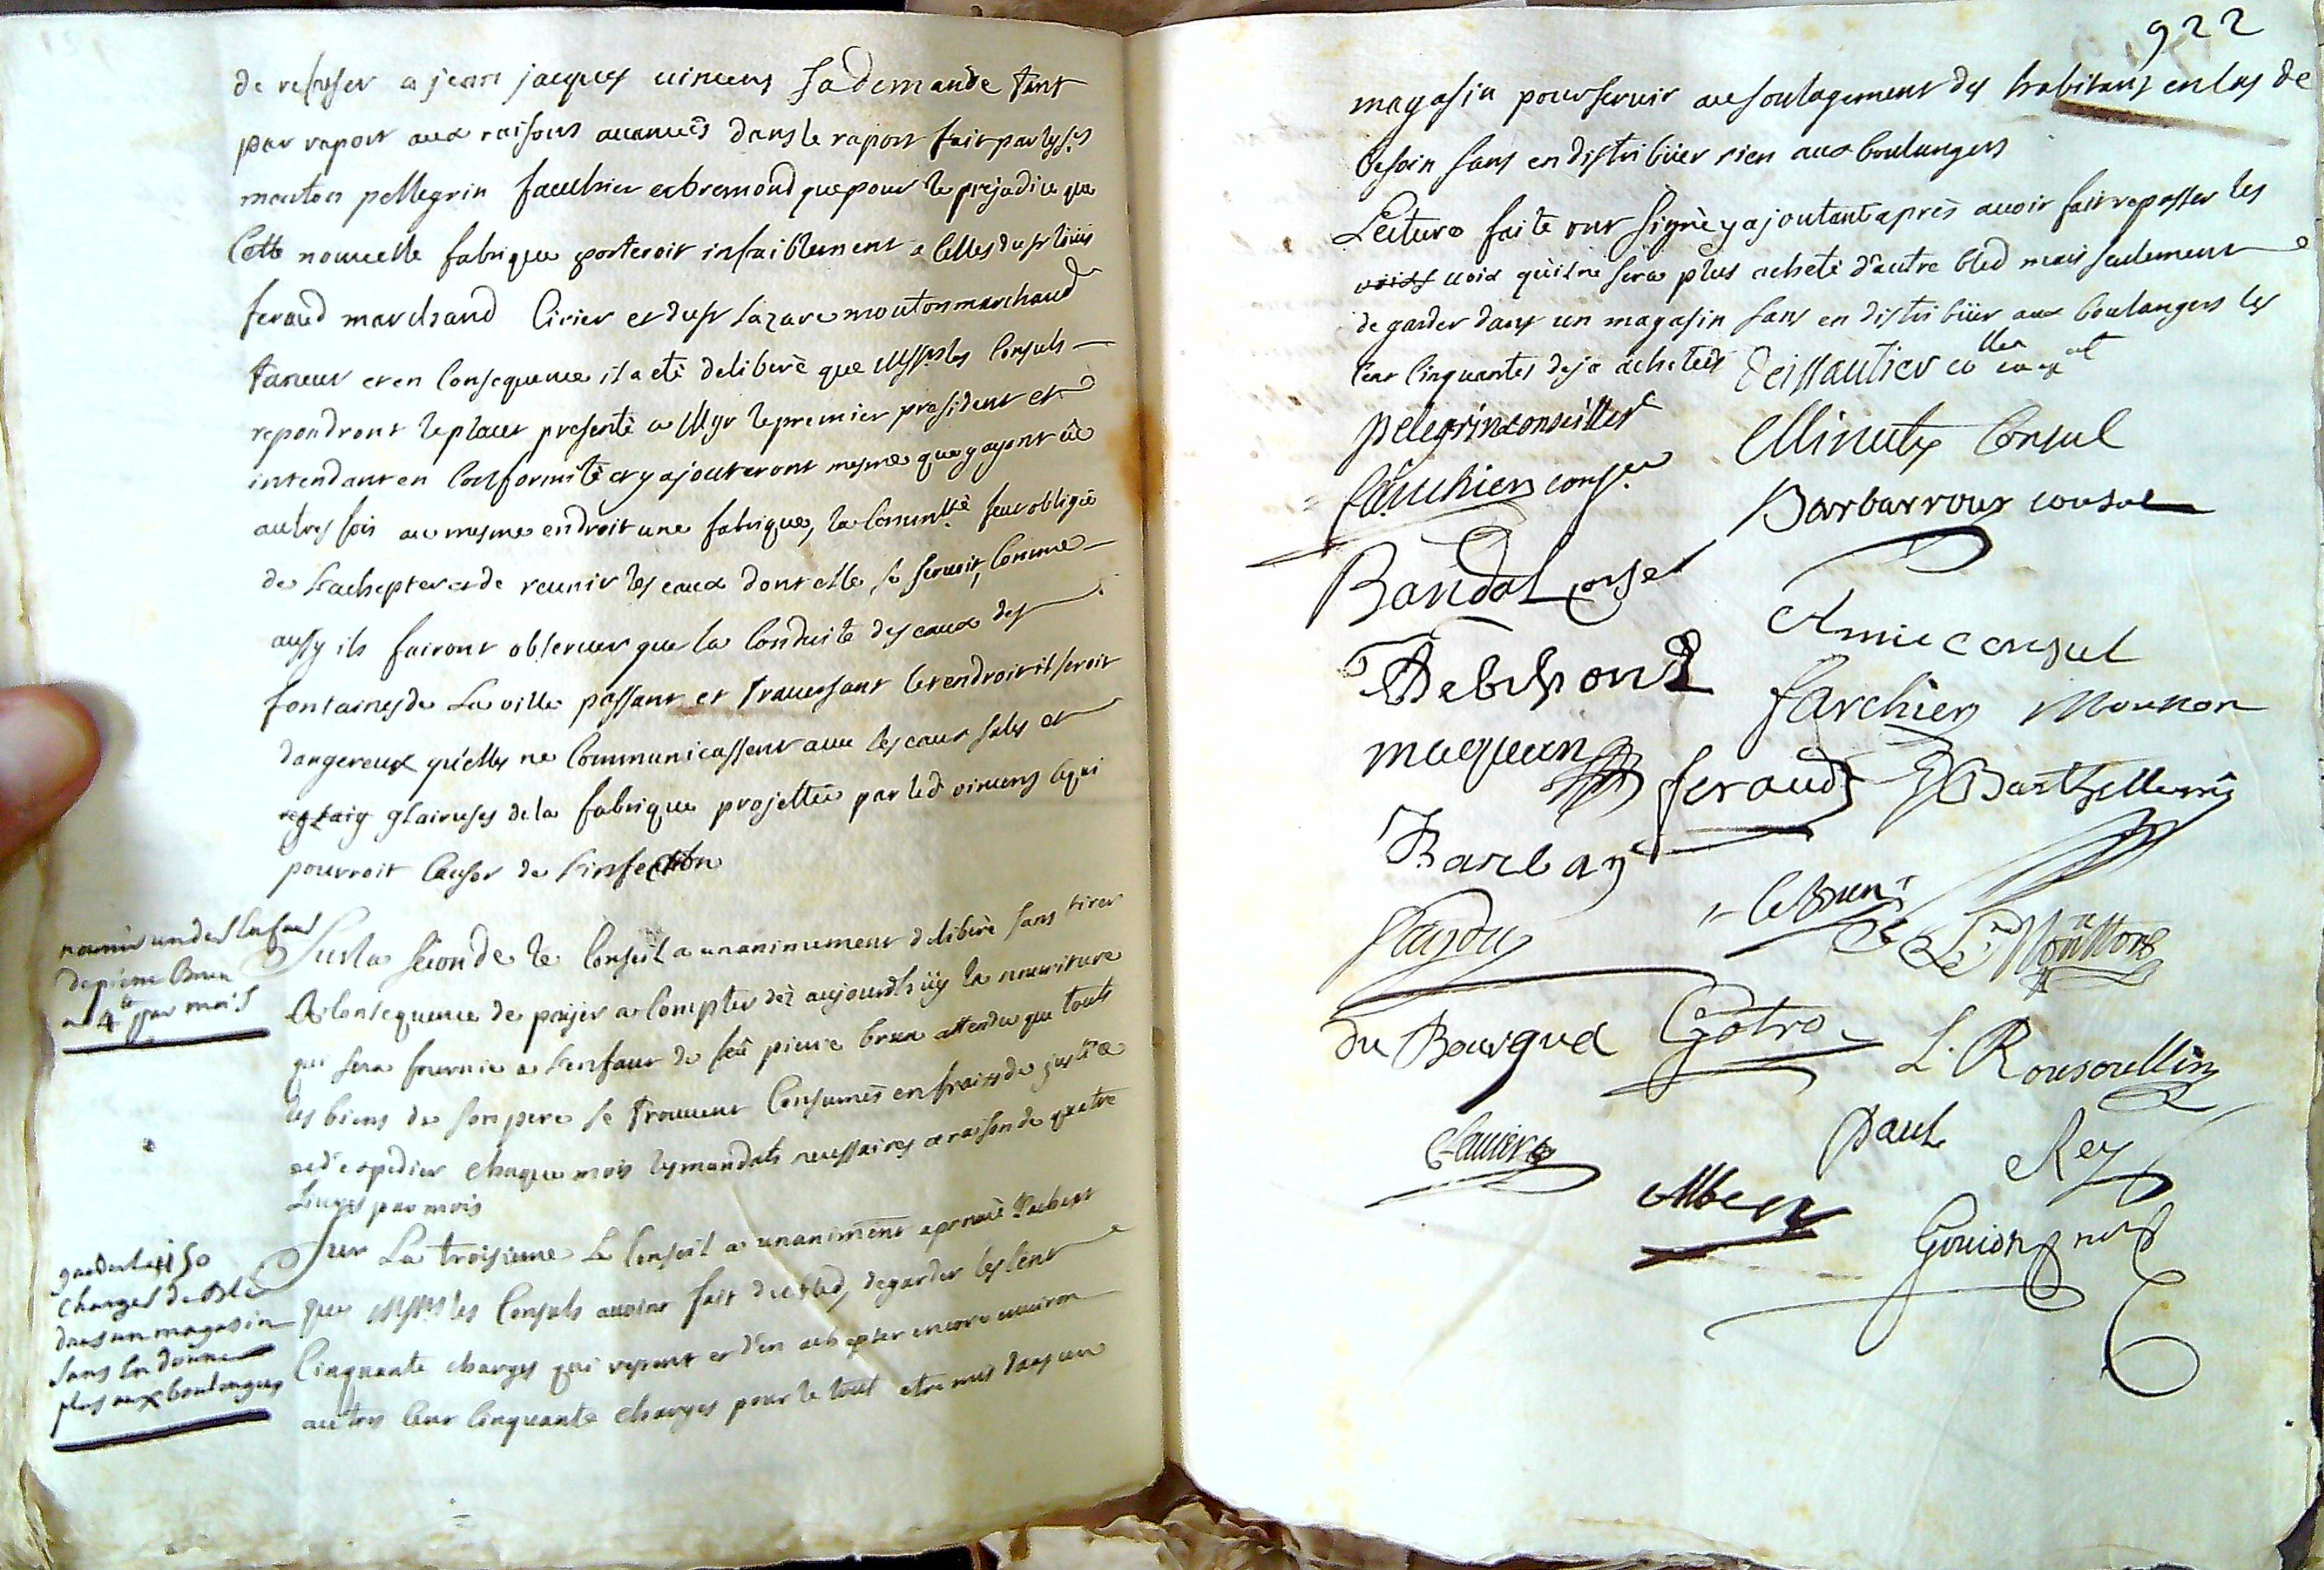 de refuser a jean jacques vincens sa demande tant
par raport aux raisons avancées dans le raport fait par les srs
mouton pellegrin fauchier et bremond que pour le prejudice que
Cette nouvelle fabrique porteroit infailliblement a Celles du sr loüis
feraud marchand Cirier et du sr Lazare mouton marchand
taneur et en Consequence il a eté deliberé que Messrs les Consuls
repondront le placet presenté a Mgr le premier president et
intendant en Conformité et y ajouteront mesme que y ayant eû
autres fois au mesme endroit une fabrique, la Communté feut obligée
de L'achepter et de reunir les eaux dont elle se servoit, Comme
aussy ils fairont observer que la Conduite des eaux des
fontaines de La ville passant et traversant cet endroit il seroit
dangereux qu'elles ne Communicassent avec les eaux sales et
glaireuses de la fabrique projettée par led vincens ce qui
pourroit Causer de l'infection
nourrir un des Enfans
de pierre Brun
a 4 lt par mois
Sur la seconde le Conseil a unanimement deliberé sans tirer
a Consequence de payer a Compter dez aujourdhüy la nourriture
qui sera fournie a L'enfant de feû pierre brun attendu que touts
les biens de son pere se trouvent Consumés en frais de justice
et d'expedier chaque mois les mandats necessaires a raison de quatre
Livres par mois
garder les 150
charges de Blé
dans un magasin
sans En donner
plus aux boulangers
Sur La troisieme Le Conseil a unaniment aprouvé l'achept
que Messrs les Consuls avoint fait du bled, de garder les Cent
Cinquante charges qui restent et d'en achepter encore environ
autres Cent Cinquante charges pour le tout etre mis dans un
922
magasin pour servir au soulagement des habitans en Cas de
besoin sans en distribüer rien aux boulangers
Lecture faite ont signé y ajoutant après avoir fait repasser les
voix qu'il ne sera plus acheté d'autre bled mais seulement
de garder dans un magasin sans en distribüer aux boulangers les
Cent Cinquantes deja achetées Deissautier
pelegrin conseiller Minuty Consul
fauchier conser Barbarroux consul
Bandol conser
Amic consul
Debremond
farchier Mouton
maquan feraud Barthellemy
Barlay
leBrun
Le Moutton
du Bourguet Gotro L. Rousoullin
Clavier paul Rey
Alben Gouion nord